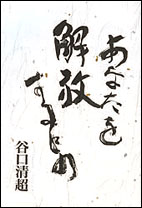 あなたを
解放するもの
谷口清超